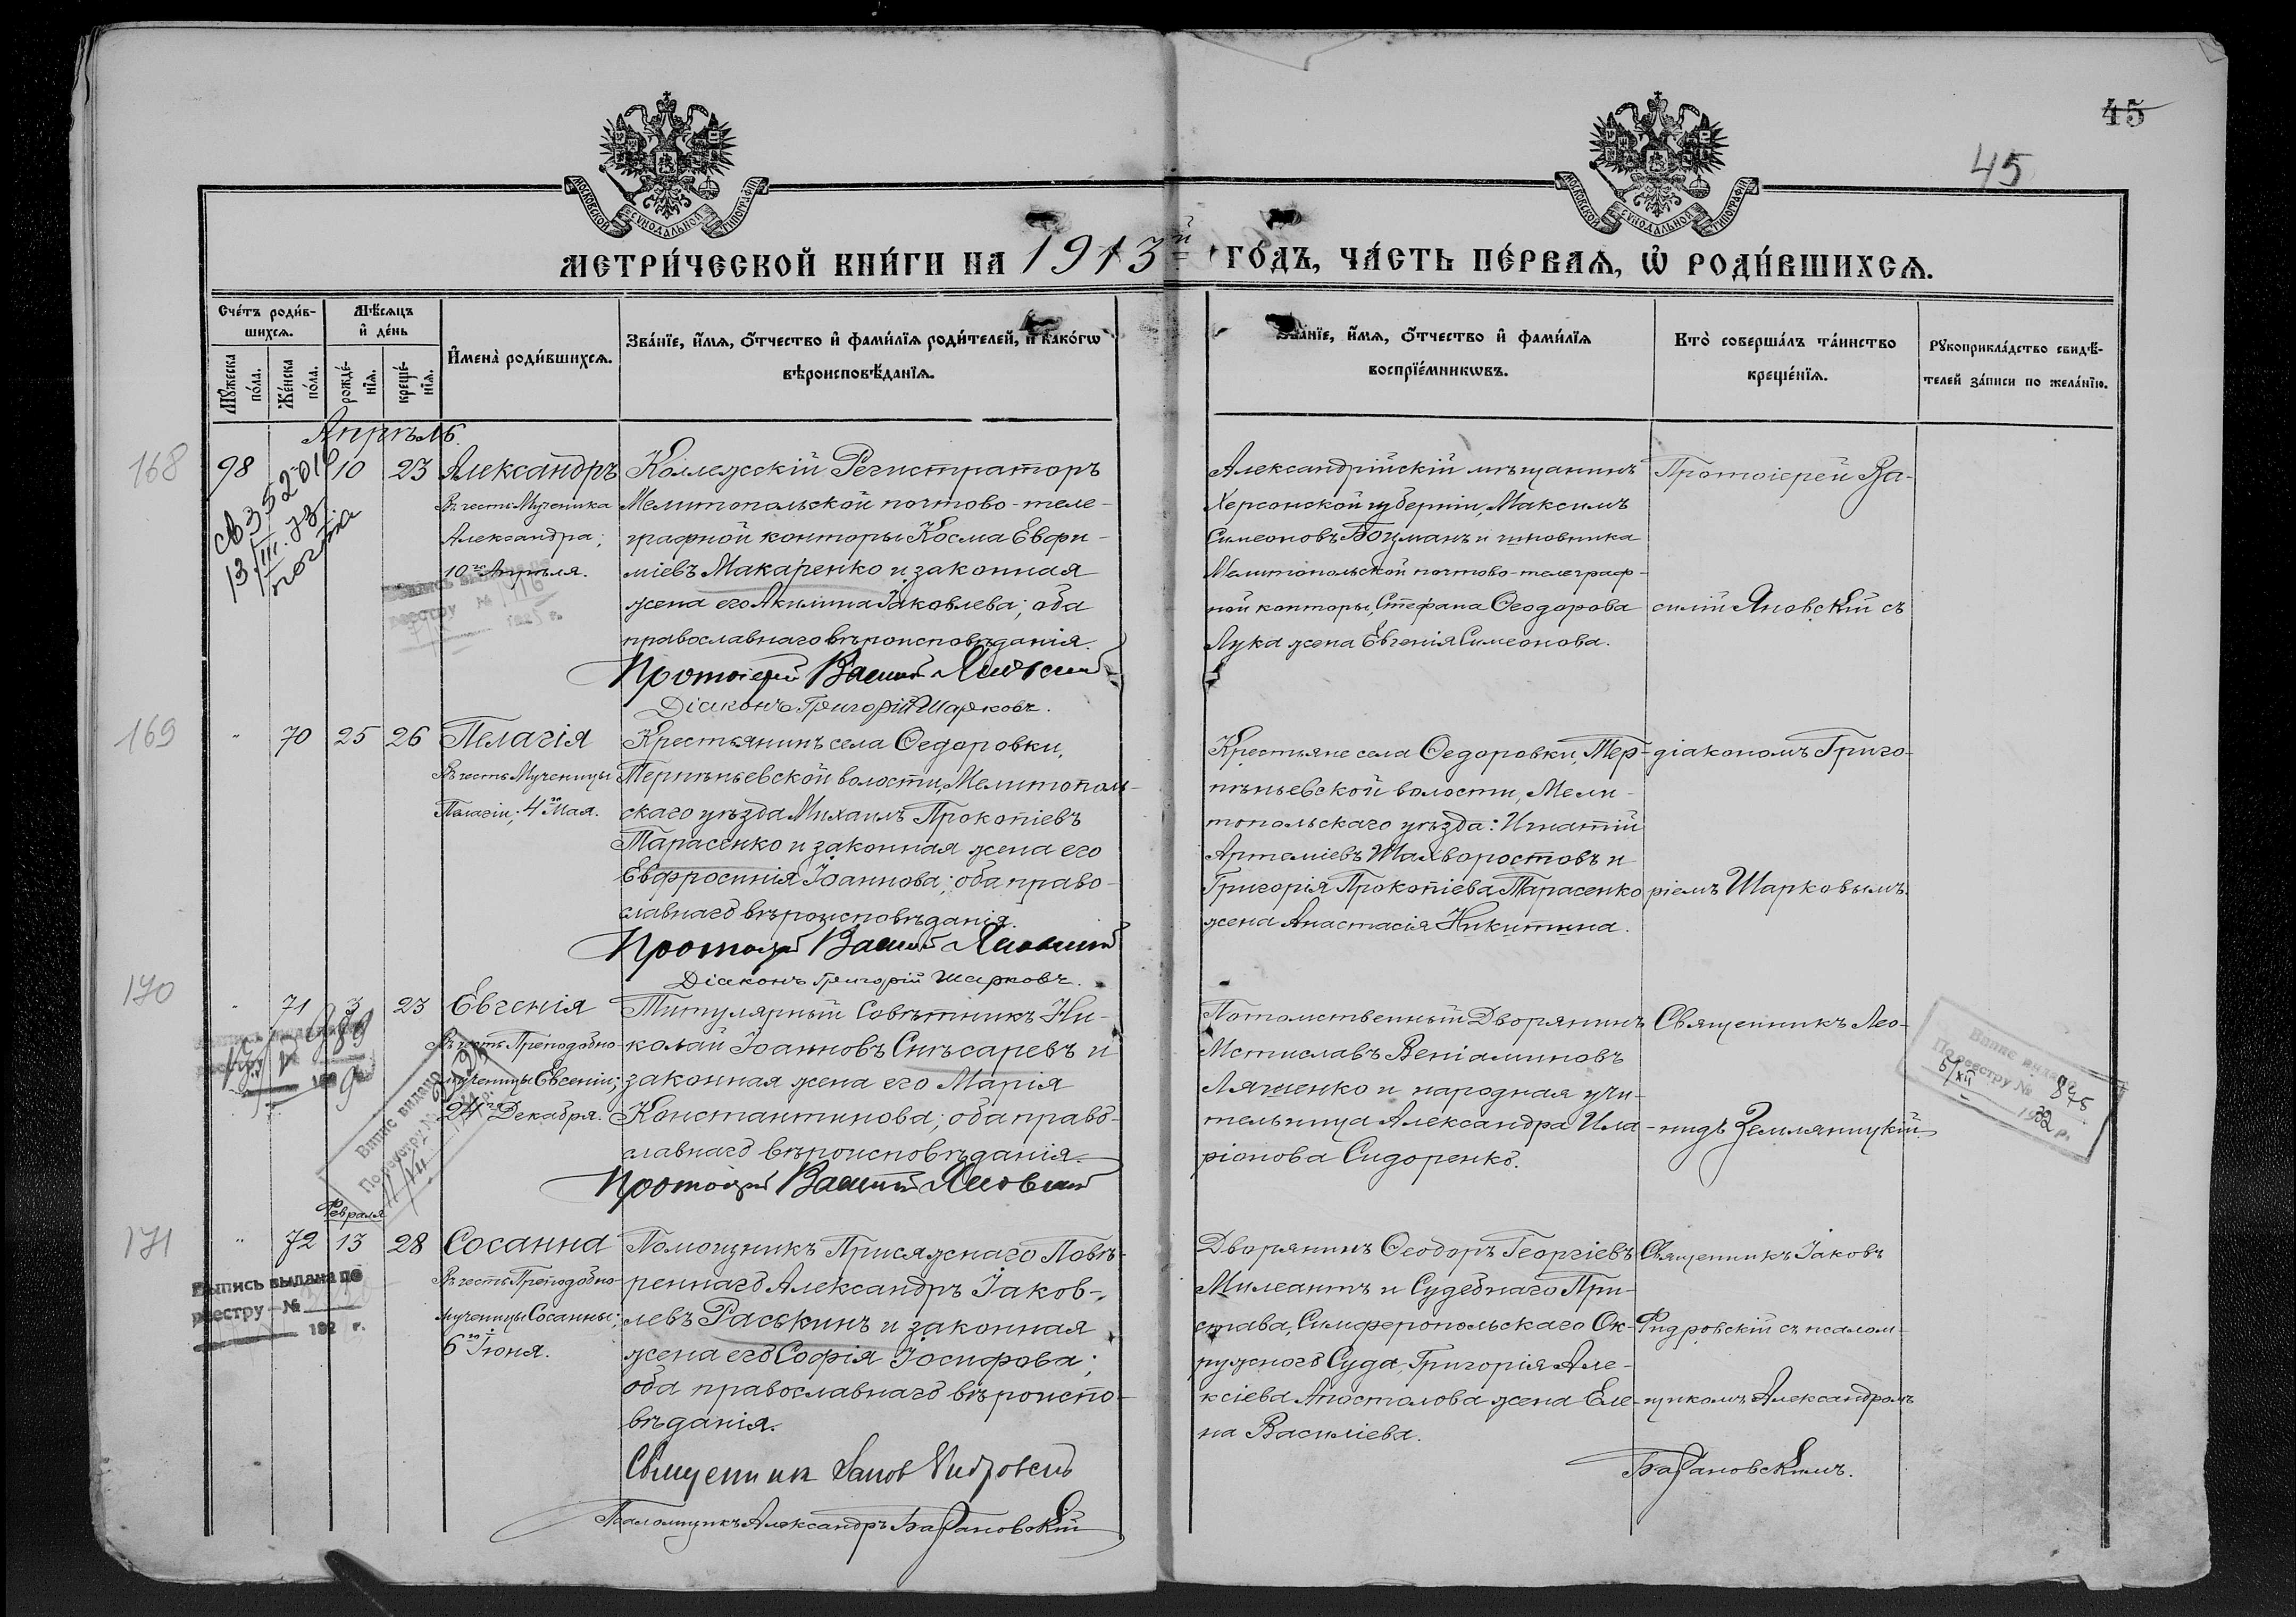 45
45
МОСКОВСКОЙ СѴНОДАЛЬНОЙ ТИПОГРАФІИ
МОСКОВСКОЙ СѴНОДАЛЬНОЙ ТИПОГРАФІИ
МЕТРИ́ЧЕСКОЙ КНИ́ГИ НА 1913й ГО́ДЪ, ЧА́СТЬ ПЕ́РВАѦ, Ѡ҆ РОДИ́ВШИХСѦ.
Сче́тъ роди́в-
шихсѧ.
Мѣ́сѧцъ
и҆ де́нь
Мꙋ́жеска
по́ла.
Же́нска
по́ла.
рожде́-
нїѧ.
креще́-
нїѧ.
И҆мена̀ роди́вшихсѧ.
Зва́нїе, и҆́мѧ, ѻ҆́тчество и҆ фами́лїѧ роди́телей, и҆ како́гѡ
вѣроисповѣ́данїѧ.
Зва́нїе, и҆́мѧ, ѻ҆́тчество и҆ фами́лїѧ
воспрїе́мникѡвъ.
Кто̀ соверша́лъ та́инство
креще́нїѧ.
Рꙋкоприкла́дство свидѣ́-
телей за́писи по жела́нїю.
Апрѣль
168
98
10
23
Александръ
Въ честь Мученика
Александра;
10го Апрѣля.
Коллежскій Регистраторъ
Мелитопольской почтово-теле-
графной конторы Косма Евфи-
міевъ Макаренко и законная
жена его Акилина Іаковлева; оба
православнаго вѣроисповѣданія.
Протоіерей Василій Яновскій
Діаконъ Григорій Шарковъ.
Александрійскій мѣщанинъ
Херсонской губерніи, Максимъ
Симеоновъ Боцманъ и чиновника
Мелитопольской почтово-телеграф-
ной конторы, Стефана Ѳеодорова
Лука жена Евгенія Симеонова.
Протоіерей Ва-
силій Яновскій съ
169
"
70
25
26
Пелагія
Въ честь Мученицы
Пелагіи; 4го Мая.
Крестьянинъ села Ѳедоровки,
Терпѣньевской волости, Мелитополь-
скаго уѣзда Михаилъ Прокопіевъ
Тарасенко и законная жена его
Евфросинія Іоаннова; оба право-
славнаго вѣроисповѣданія.
Протоіерей Василій Яновскій
Діаконъ Григорій Шарковъ.
Крестьяне села Ѳедоровки, Тер-
пѣньевской волости, Мели-
топольскаго уѣзда: Игнатій
Артеміевъ Шалворостовъ и
Григорія Прокопіева Тарасенко
жена Анастасія Никитина.
діакономъ Григо-
ріемъ Шарковымъ.
170
"
71
3
23
Евгенія
Въ честь Преподобно-
мученицы Евгеніи;
24го Декабря.
Титулярный Совѣтникъ Ни-
колай Іоанновъ Снѣсаревъ и
законная жена его Марія
Константинова; оба право-
славнаго вѣроисповѣданія.
Протоіерей Василій Яновскій
Потомственный Дворянинъ
Мстиславъ Веніаминовъ
Ляшенко и народная учи-
тельница Александра Ила-
ріонова Сидоренко.
Священникъ Лео-
нидъ Земляницкій
Випис видано
По реєстру №
Випис видано 875
По реєстру №
5/XII 1922 р.
171
Февраля
"
72
13
28
Сосанна
Въ честь Преподобно-
мученицы Сосанны;
6го Іюня.
Помощникъ Присяжнаго Повѣ-
реннаго Александръ Іаков-
левъ Раськинъ и законная
жена его Софія Іосифова;
оба православнаго вѣроиспо-
вѣданія.
Священник Іаков Фидровскій
Псаломщикъ Александръ Барановскій
Дворянинъ Ѳеодоръ Георгіевъ
Милеантъ и Судебнаго При-
става, Симферопольскаго Ок-
ружного Суда, Григорія Але-
ксіева Апостолова жена Еле-
на Василіева.
Священникъ Іаковъ
Фидровскій съ псалом-
щикомъ Александромъ
Барановскимъ.
Выпись выдана по
реестру №
192 г.